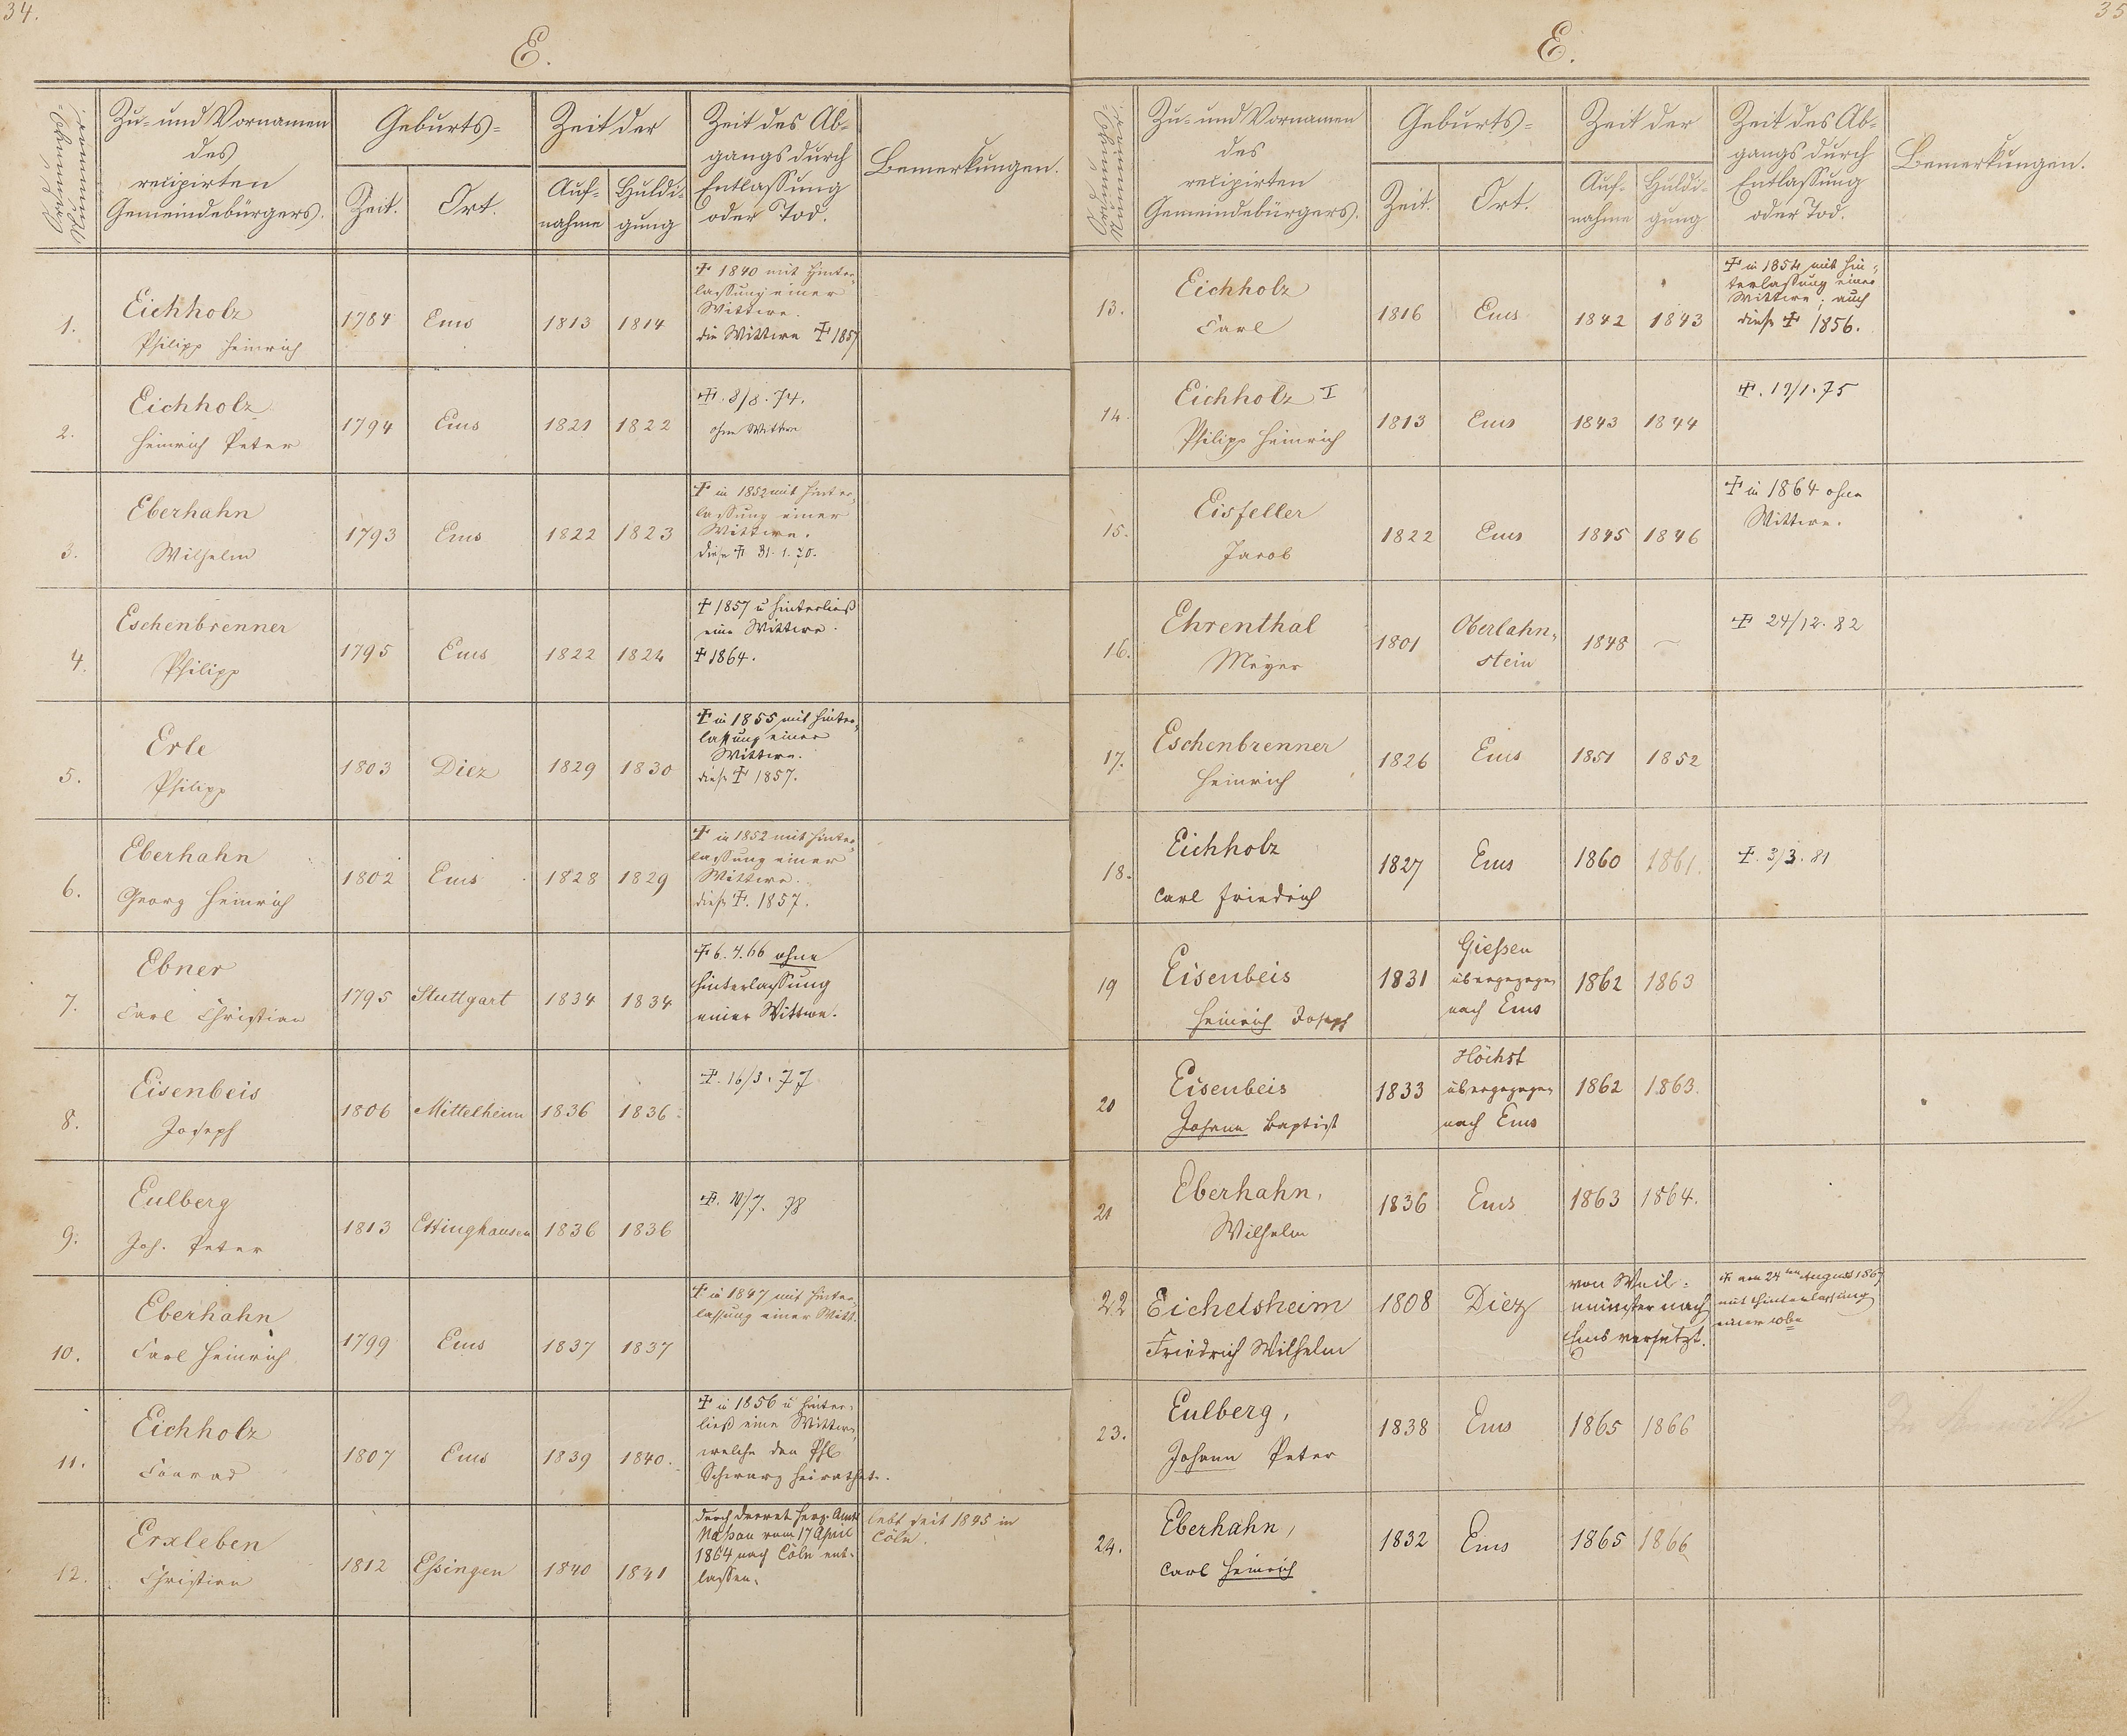 34.
E.
Ordnungs-
Nummer.
Zu- und Vornamen
des
recipirten
Gemeindebürgers.
Geburts-
Zeit.
Ort.
Zeit der
Auf-
nahme
Huldi-
gung
Zeit des Ab-
gangs durch
Entlassung
oder Tod.
Bemerkungen.
1.
Eichholz
Philipp Heinrich
1784
Ems
1813
1814
† 1840 mit Hinter-
lassung einer
Wittwe.
die Wittwe † 1857
2.
Eichholz
Heinrich Peter
1794
Ems
1821
1822
†. 8/8. 74.
ohne Wittwe
3.
Eberhahn
Wilhelm
1793
Ems
1822
1823
† in 1852 mit Hinter-
lassung einer
Wittwe.
diese † 31. 1. 70.
4.
Eschenbrenner
Philipp
1795
Ems
1822
1824
† 1857 u hinterließ
eine Wittwe.
† 1864.
5.
Erle
Philipp
1803
Diez
1829
1830
† in 1855 mit Hinter-
lassung einer
Wittwe.
diese † 1857.
6.
Eberhahn
Georg Heinrich
1802
Ems
1828
1829
† in 1852 mit Hinter-
lassung einer
Wittwe.
diese †. 1857.
7.
Ebner
Carl Christian
1795
Stuttgart
1834
1834
† 6. 4. 66 ohne
Hinterlassung
einer Wittwe.
8.
Eisenbeis
Joseph
1806
Mittelheim
1836
1836
†. 16/3. 77
9.
Eulberg
Joh. Peter
1813
Ettinghausen
1836
1836
†. /7. 78
10.
Eberhahn
Carl Heinrich
1799
Ems
1837
1837
† in 1847 mit Hinter-
lassung einer Witt.
11.
Eichholz
Conrad
1807
Ems
1839
1840.
† in 1856 u hinter-
ließ eine Wittwe,
welche den Phl
Schwarz heirathet.
12.
Erxleben
Christian
1812
Eßingen
1840
1841
durch Decret Herz. Amts
Naßau vom 17 April
1864 nach Cöln ent-
lassen.
lebt seit 1845 in
Cöln.
35
E.
Ordnungs-
Nummer.
Zu- und Vornamen
des
recipirten
Gemeindebürgers.
Geburts-
Zeit.
Ort.
Zeit der
Auf-
nahme
Huldi-
gung
Zeit des Ab-
gangs durch
Entlassung
oder Tod.
Bemerkungen.
13.
Eichholz
Carl
1816
Ems
1842
1843
† in 1854 mit Hin-
terlassung einer
Wittwe; auch
diese † 1856.
14.
Eichholz I
Philipp Heinrich
1813
Ems
1843
1844
†. 19/1. 75
15.
Eisfeller
Jacob
1822
Ems
1845
1846
† in 1864 ohne
Wittwe.
16.
Ehrenthal
Meyer
1801
Oberlahn-
stein
1848
—
† 24/12. 82
17.
Eschenbrenner
Heinrich
1826
Ems
1851
1852
18.
Eichholz
Carl Friedrich
1827
Ems
1860
1861.
†. 3/3. 81
19
Eisenbeis
Heinrich Joseph
1831
Giessen
übergezogen
nach Ems
1862
1863
20
Eisenbeis
Johann Baptist
1833
Höchst
übergezogen
nach Ems
1862
1863.
21
Eberhahn,
Wilhelm
1836
Ems
1863
1864.
22
Eichelsheim
Friedrich Wilhelm
1808
Diez
von Weil-
münster nach
Ems versetzt.
† am 24ten August 1867
mit Hinterlassung
einer Wbe
23.
Eulberg,
Johann Peter
1838
Ems
1865
1866
24.
Eberhahn,
Carl Heinrich
1832
Ems
1865
1866